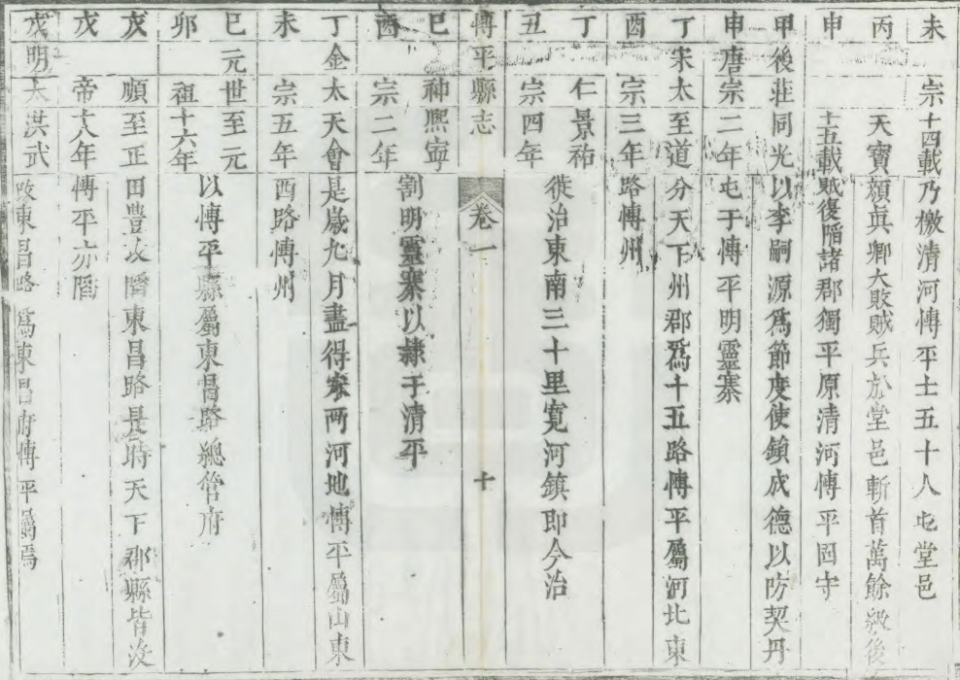 未　宗十四載　乃檄清河博平士五十人屯堂邑
丙　天寶　顏眞卿大敗賊兵於堂邑斬首萬餘級後
申　十五載　賊復陷諸郡獨平原清河博平固守
甲後莊同光　以李嗣源爲節度使鎮成德以防契丹
申唐宗二年　屯于博平明靈寨
丁宋太至道　分天下州郡爲十五路博平屬河北東
酉　宗三年　路博州
丁　仁景祐　徙治東南三十里寬河鎮即今治
丑　宗四年
博平縣志　卷一　十
巳　神熙寧　割明靈寨以隸于清平
酉　宗二年
丁金太天會　是歲九月盡得宋兩河地博平屬山東
未　宗五年　西路博州
巳元世至元　以博平縣屬東昌路總管府
卯　祖十六年
戊　順至正　田豊攻陷東昌路長時天下郡縣皆没
戊　帝十八年　博平亦陷
戊明太洪武　改東昌路爲東昌府博平屬焉